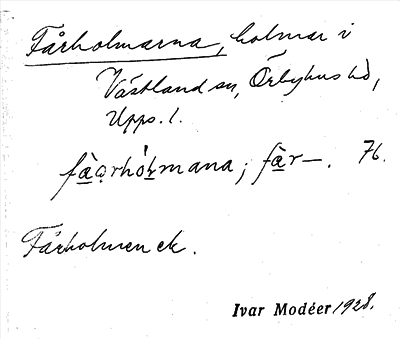 Fårholmarna, holmar i
Västland sn, Örbyhus hd,
Upps. l.
fàọrhóḻmana; fàr—. 76.
Fårholmen ek.
Ivar Modéer 1928.